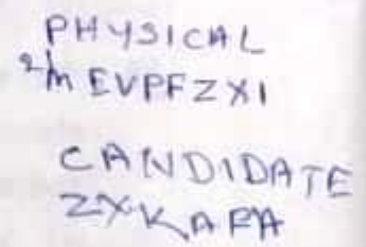 PHYSICAL
EVPFZXI
CANDIDATE
ZXKAFA